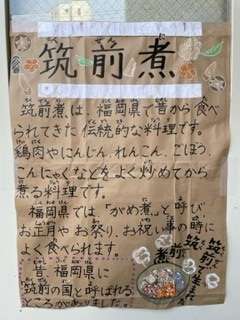 筑前煮
筑前煮は、福岡県で昔から食べ
られてきた伝統的な料理です。
鶏肉やにんじん、れんこん、ごぼう、
こんにゃくなどをよく炒めてから
煮る料理です。
福岡県では、「がめ煮」と呼び
お正月やお祭り、お祝い事の時に
よく食べられます。
昔、福岡県に
筑前の国と呼ばれる
ところがありました。